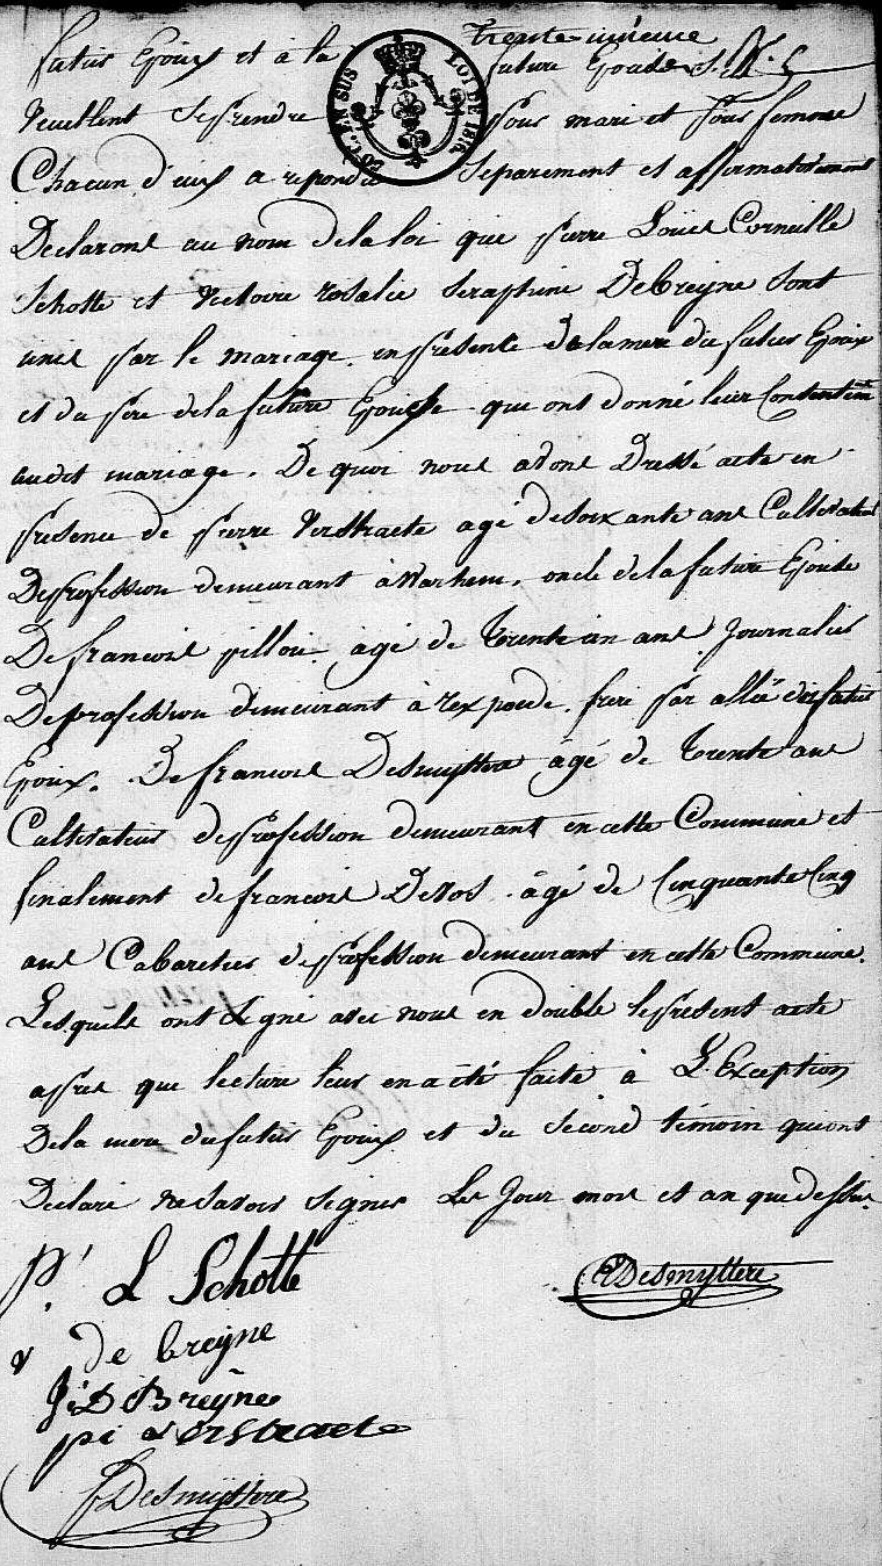 trente-uniéme
futur Epoux et à la future Epouse s'ils
veuellent se prendre pour mari et pour femme
Chacun d'eux a repondu separement et affirmativement
Declarons au nom de la loi que pierre Loüis Corneille
Schotte et Victoire rosalie Seraphine DeBreyne sont
unis par le mariage. en presente de la mere du futur Epoux
et du pere de la future Epouse qui ont donné leur Consentem
audit mariage. De quoi nous avons Dressé acte en
presence de pierre Verstraete agé de soixante ans Cultivateur
De profession demeurant à Warhem. oncle de la future Epouse
De francois pilloi agé de Trente un ans Journalier
De profession demeurant à rexpoede. frere par allié du futur
Epoux. De francois Desmyttere âgé de Trente ans
Cultivateur de profession demeurant en cette Commune et
finalement de francois DeVos âgé de Cinquante Cinq
ans Cabaretier de profession demeurant en cette Commune.
Lesquels ont signé avec nous en double le present acte
apres que lecture leur en a été faite à L'Exception
De la mere du futur Epoux et du second témoin qui ont
Declaré ne savoir signer Les Jour mois et an que dessus.
P. L Schotte
Desmyttere
v de breyne
J: D Breyne
pi verstraete
f Desmyttere
EN SUS
LOI DE 1816